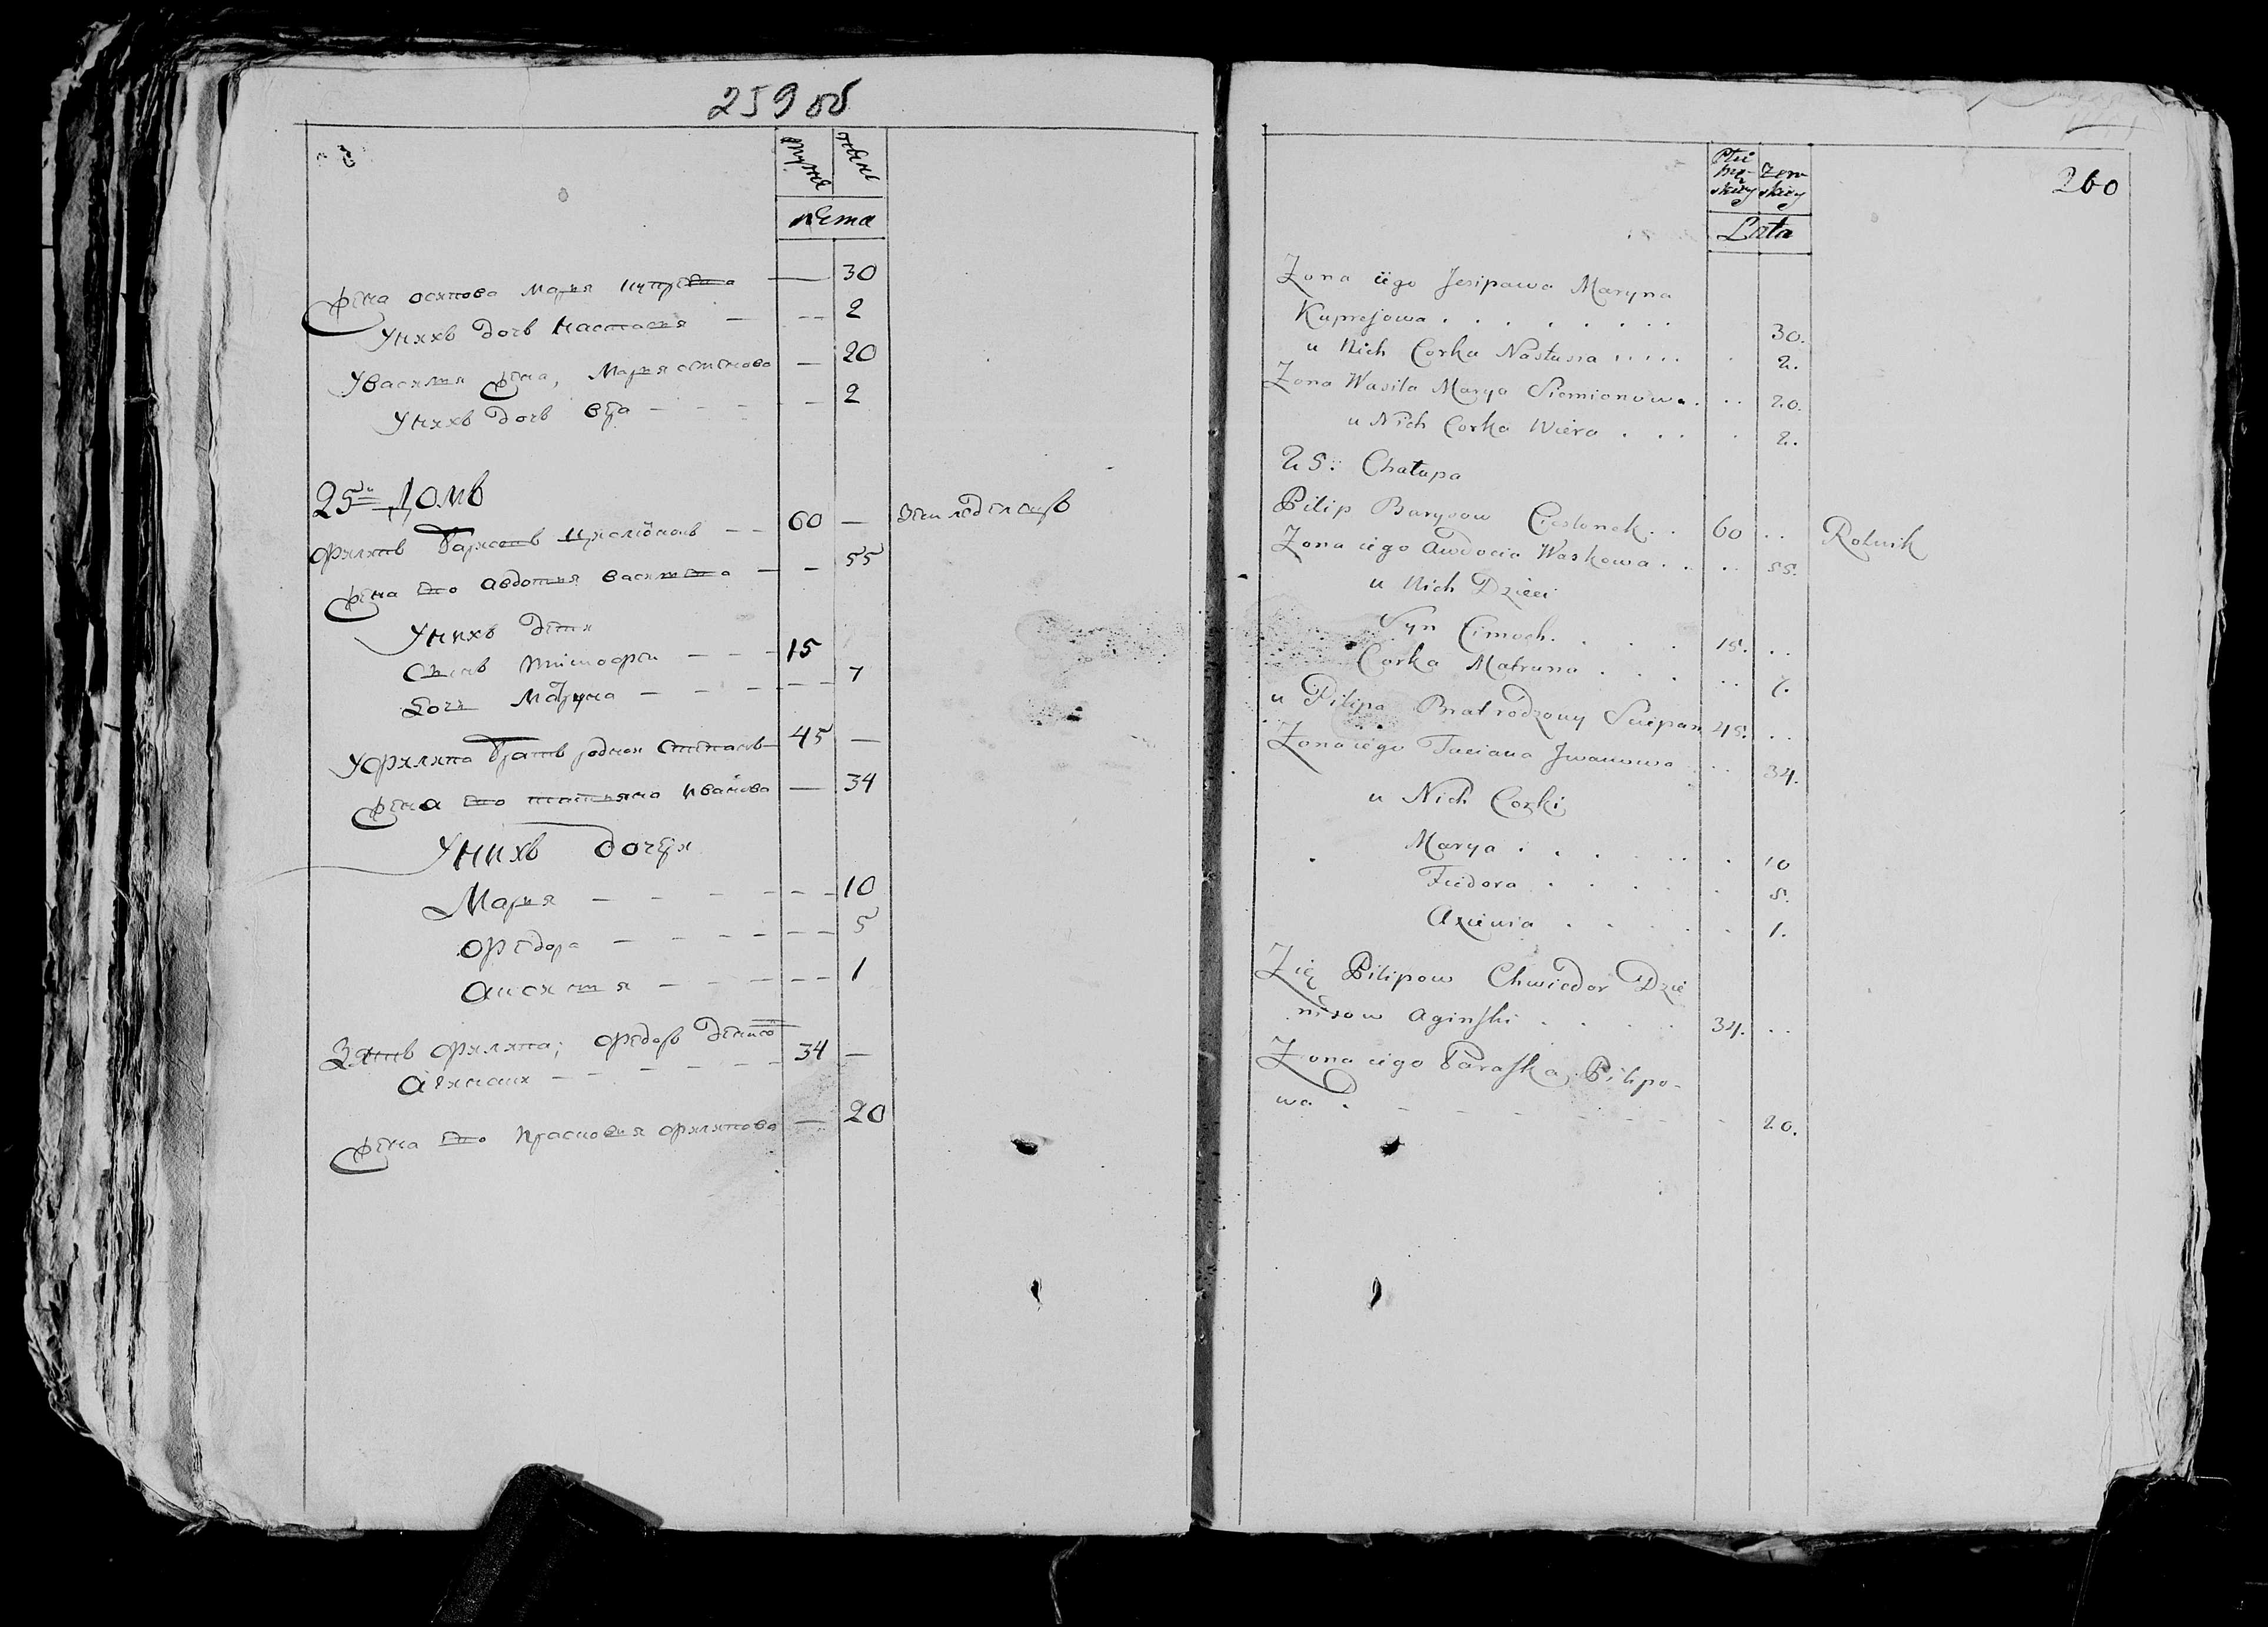 259 об
муже
жене
лета
30
жена осипова марья купреева —
2
У нихъ дочь настасия — --
20
У василия жена, Марья семенова —
2
У нихъ дочь вера - - - - -
25й Домъ
Филипъ Барисовъ -- 60 — земледелецъ
жена его авдотия васильева — - 55
У нихъ дети
Сынъ тимофеи - - - 15
Дочь матруна - - - - - 7
У филипа братъ родной степанъ — 45 —
жена его татьяна иванова — 34
У нихъ дочери
Мария - - - - - - 10
федора - - - - - - 5
- - - - - 1
Зять филипа; федоръ денисо
- - - - - 34 —
жена его Прасковия филипова — 20
260
Plci
męz-
skiey
żeń-
skiey
Lata
Zona iego Jesipawa Maryna
Kuprejowa . . . . . . . . 30.
u Nich Corka Nastusia ..... . 2.
Zona Wasila Marya Siemionowa. .. 20.
u Nich Corka Wiera . . . . 2.
25. Chałupa
Pilip Barysow Cieslonek .. 60 .. Rolnik
Zona iego Awdocia Waskowa . . .. 55.
u Nich Dzieci
Syn Cimoch. . . . 15. ..
Corka Matruna . . . .. 7.
u Pilipa Brat rodzony Sciepan 45. ..
Zona iego Taciana Jwanowa . .. 34.
u Nich Corki
Marya . . . . . . . 10
Fiedora . . . . . 5.
Axienia . . . . . 1.
Zię Pilipow Chwiedor Dzie
nisow Aginski . . . . 34. ..
Zona iego Paraska Pilipo-
wa . - - - - - - - 20.